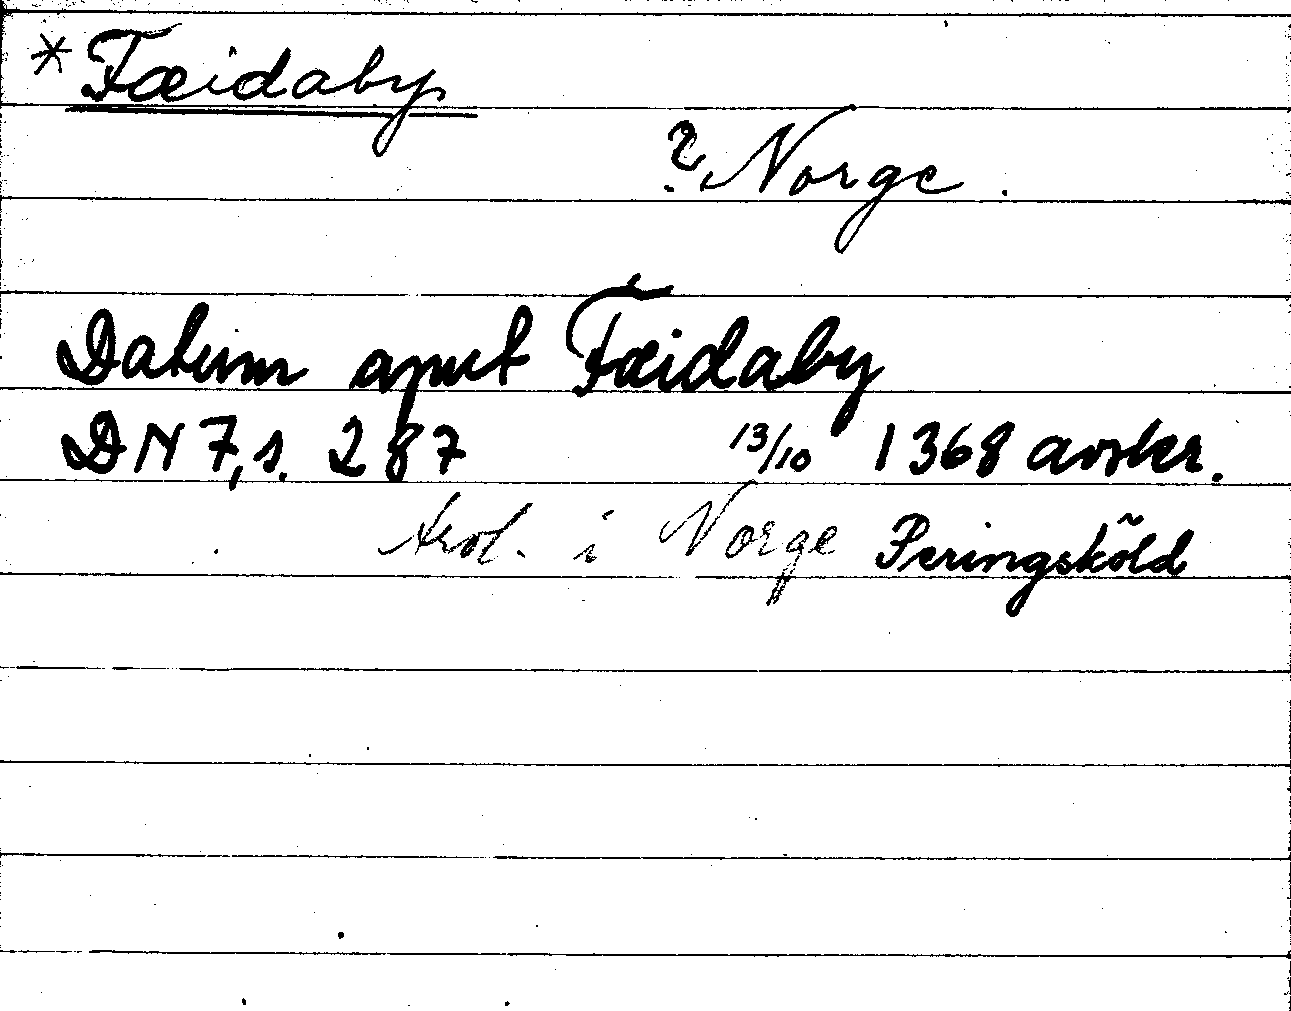 * Fæidaby
? Norge.
Datum aput Fæidaby
DN 7, s. 287 13/10 1368 avskr.
trol. i Norge Peringsköld